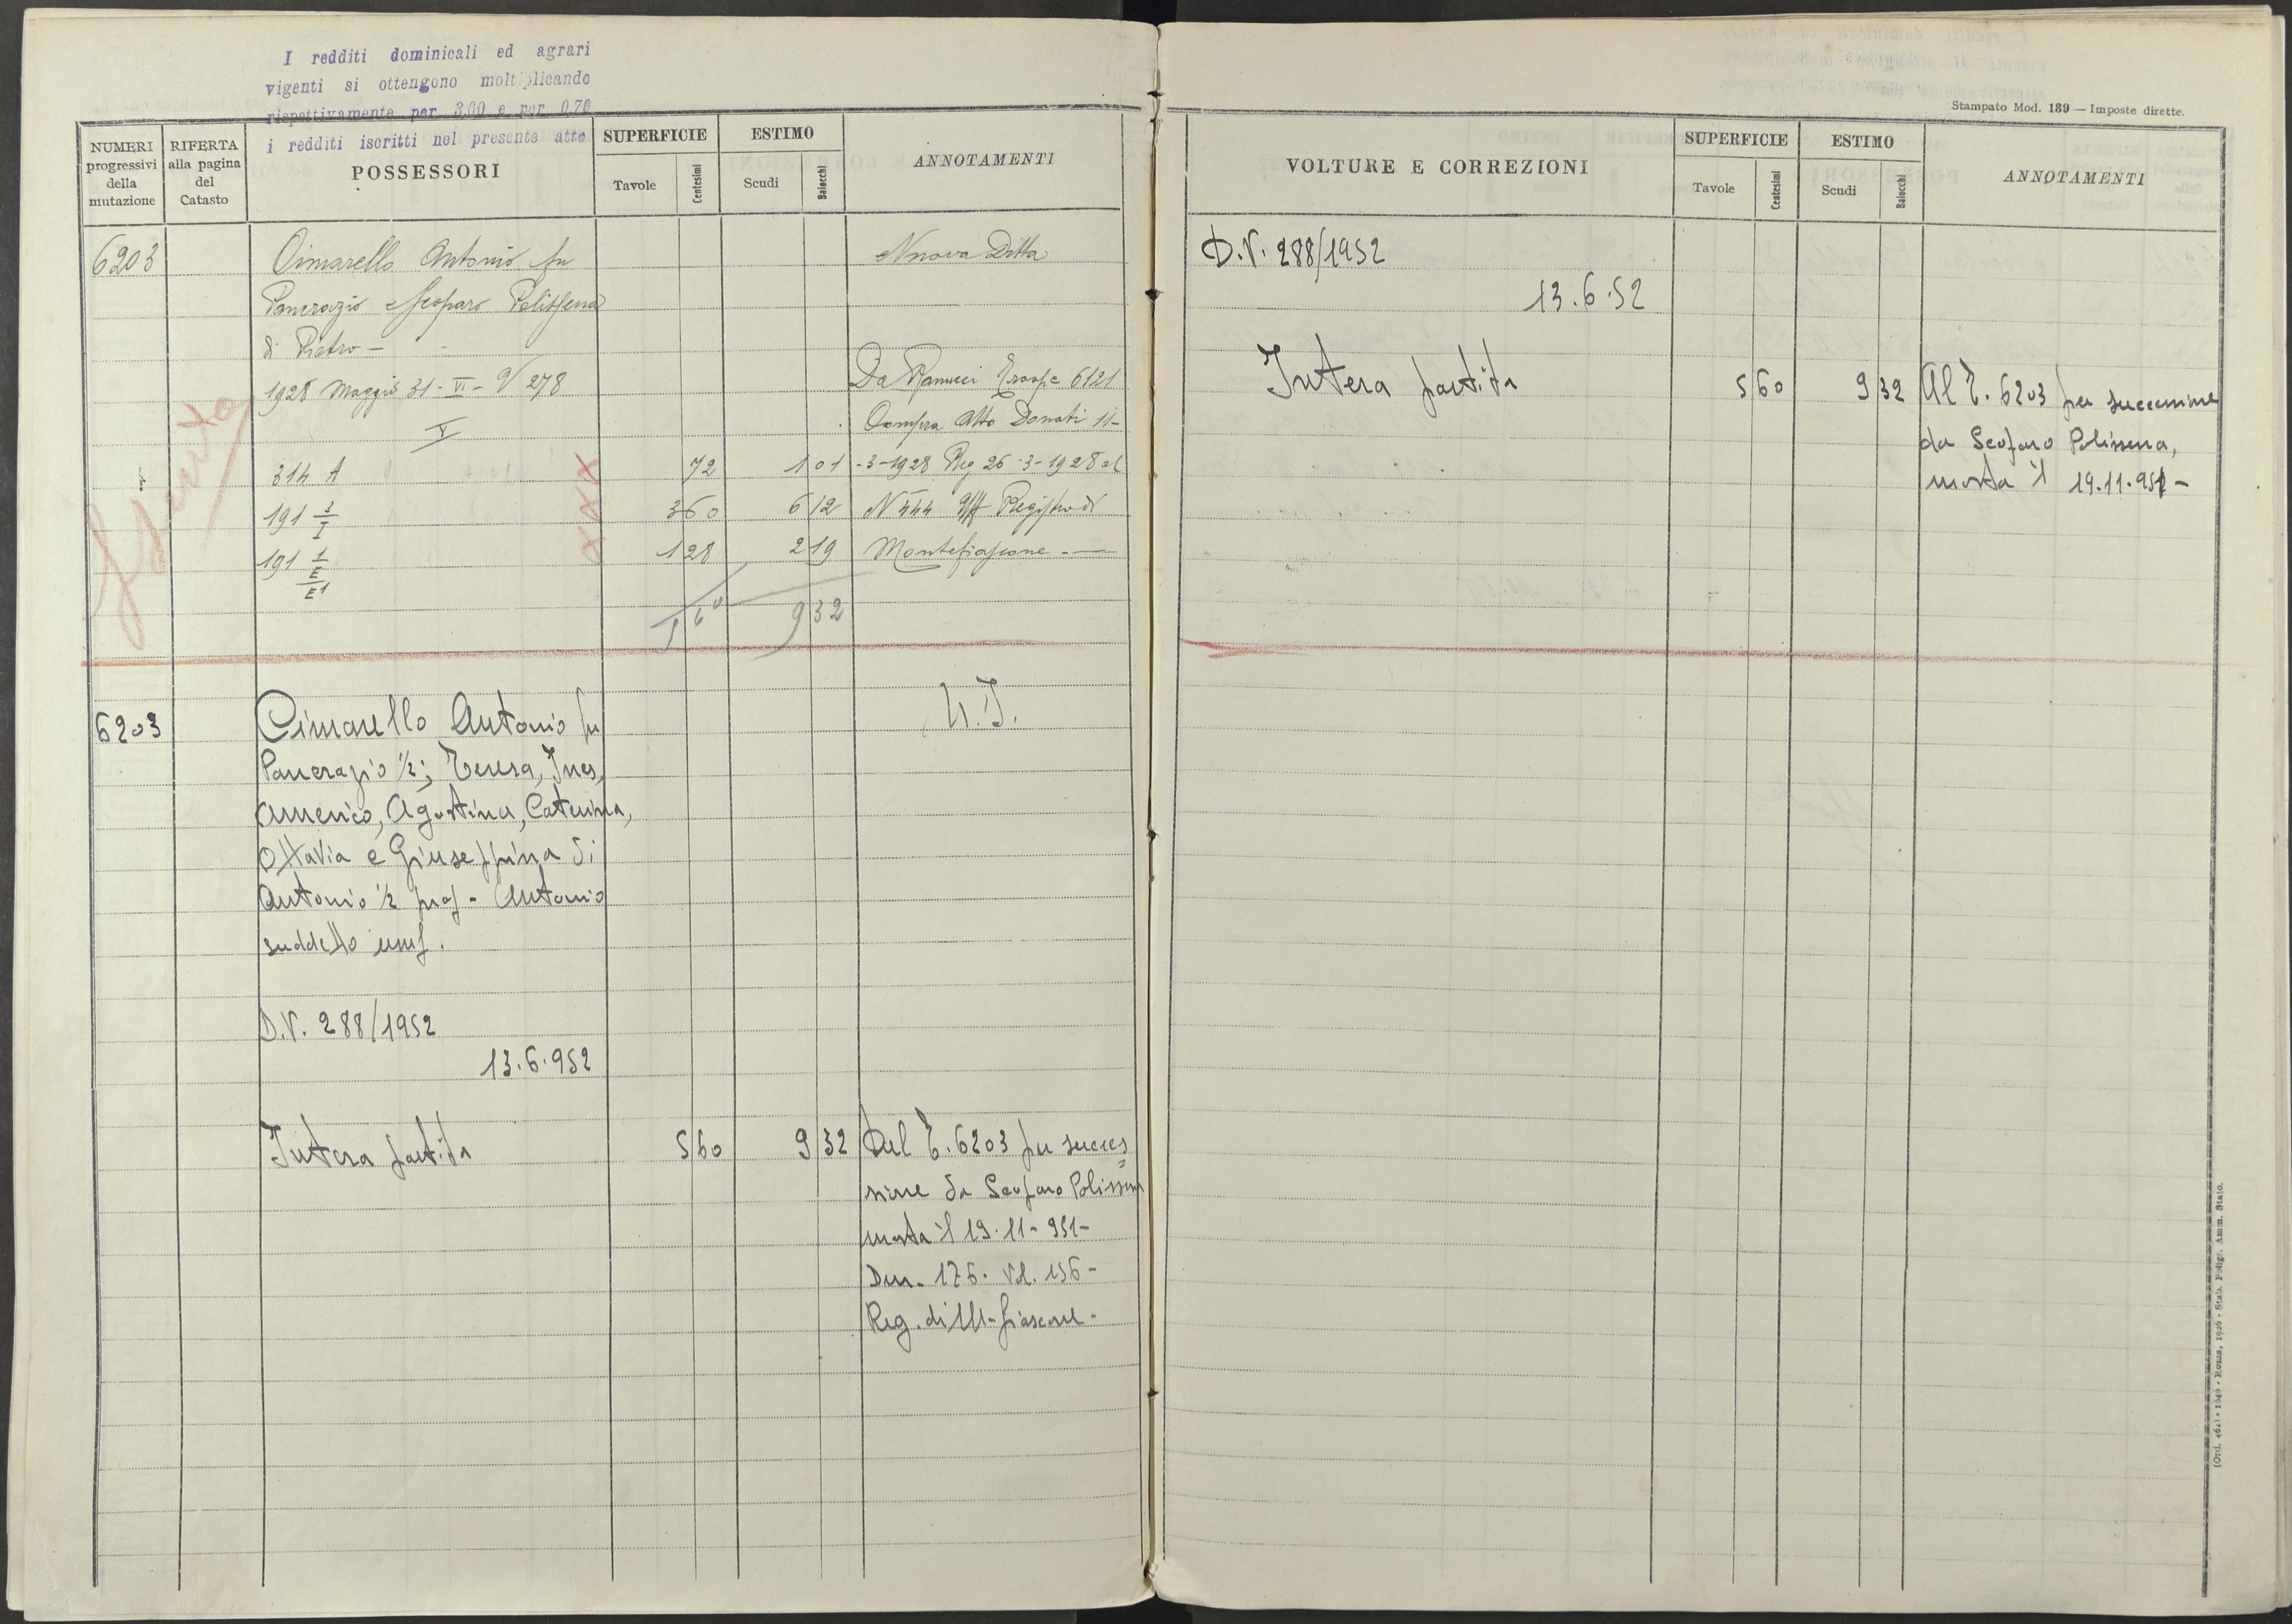 I redditi dominicali ed agrari
vigenti si ottengono moltiplicando
rispettivamente per 3,60 e per 0,70
i redditi iscritti nel presente atto
NUMERI progressivi della mutazione
RIFERTA alla pagina del Catasto
POSSESSORI
SUPERFICIE
Tavole
Centesimi
ESTIMO
Scudi
Baiocchi
ANNOTAMENTI
6203
Cimarello Antonio fu
Pancrazio e Scoparo Polissena
di Pietro —
1928 Maggio 31 - VI - V 278
V
314 A 72 1 01
191 3/I 3 60 6 12
191 1/E/E1 1 28 2 19
5 60 9 32
Nuova Ditta
Da Ranucci 6121
Compra Atto Donati 11-
-3-1928 Reg 26-3-1928 al
N 444 Uff Registro di
Montefiascone —
6203
Cimarello Antonio fu
Pancrazio 1/2; Teresa, Ines,
Americo, Agostina, Caterina,
Ottavia e Giuseppina di
Antonio 1/2 prop - Antonio
suddetto usuf.
D.V. 288/1952
13.6.952
Intera partita 5 60 9 32
Dal T. 6203 per succes=
sione da Scoparo Polissena
morta il 19-11-951-
Den. 176. Vol. 156-
Reg. di M-fiascone-
Stampato Mod. 139 — Imposte dirette.
VOLTURE E CORREZIONI
SUPERFICIE
Tavole
Centesimi
ESTIMO
Scudi
Baiocchi
ANNOTAMENTI
D.V. 288/1952
13.6.52
Intera partita 5 60 9 32
Al T. 6203 per successione
da Scoparo Polissena,
morta il 19.11.951-